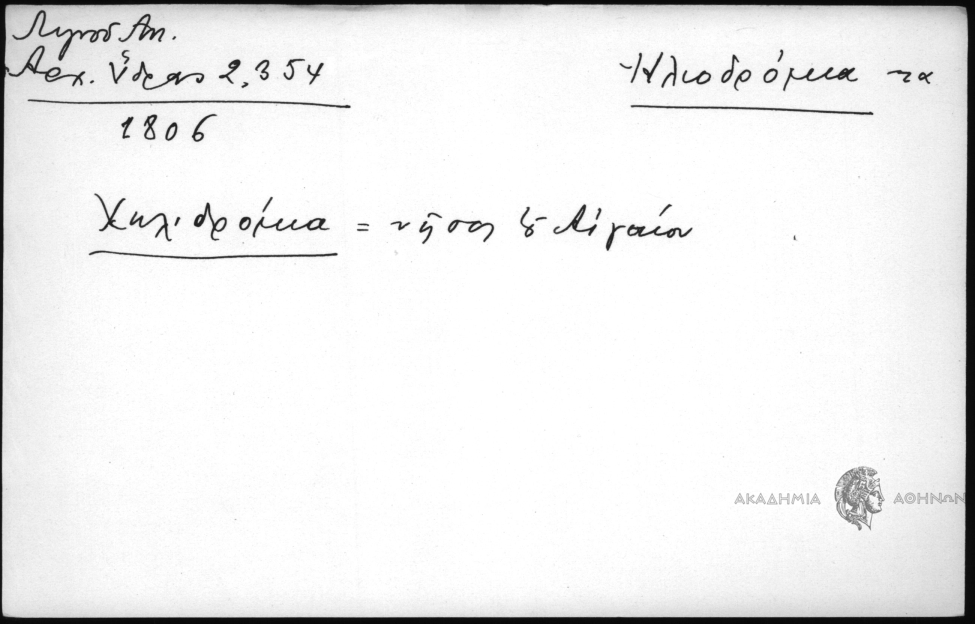 Λιγνοῦ Ἀπ.
Ἀρχ. Ὕδρας 2, 354
Ἡλιοδρόμια τα
1806
Χηλιδρόμια = νῆσος τοῦ Αἰγαίου
ΑΚΑΔΗΜΙΑ ΑΘΗΝΩΝ